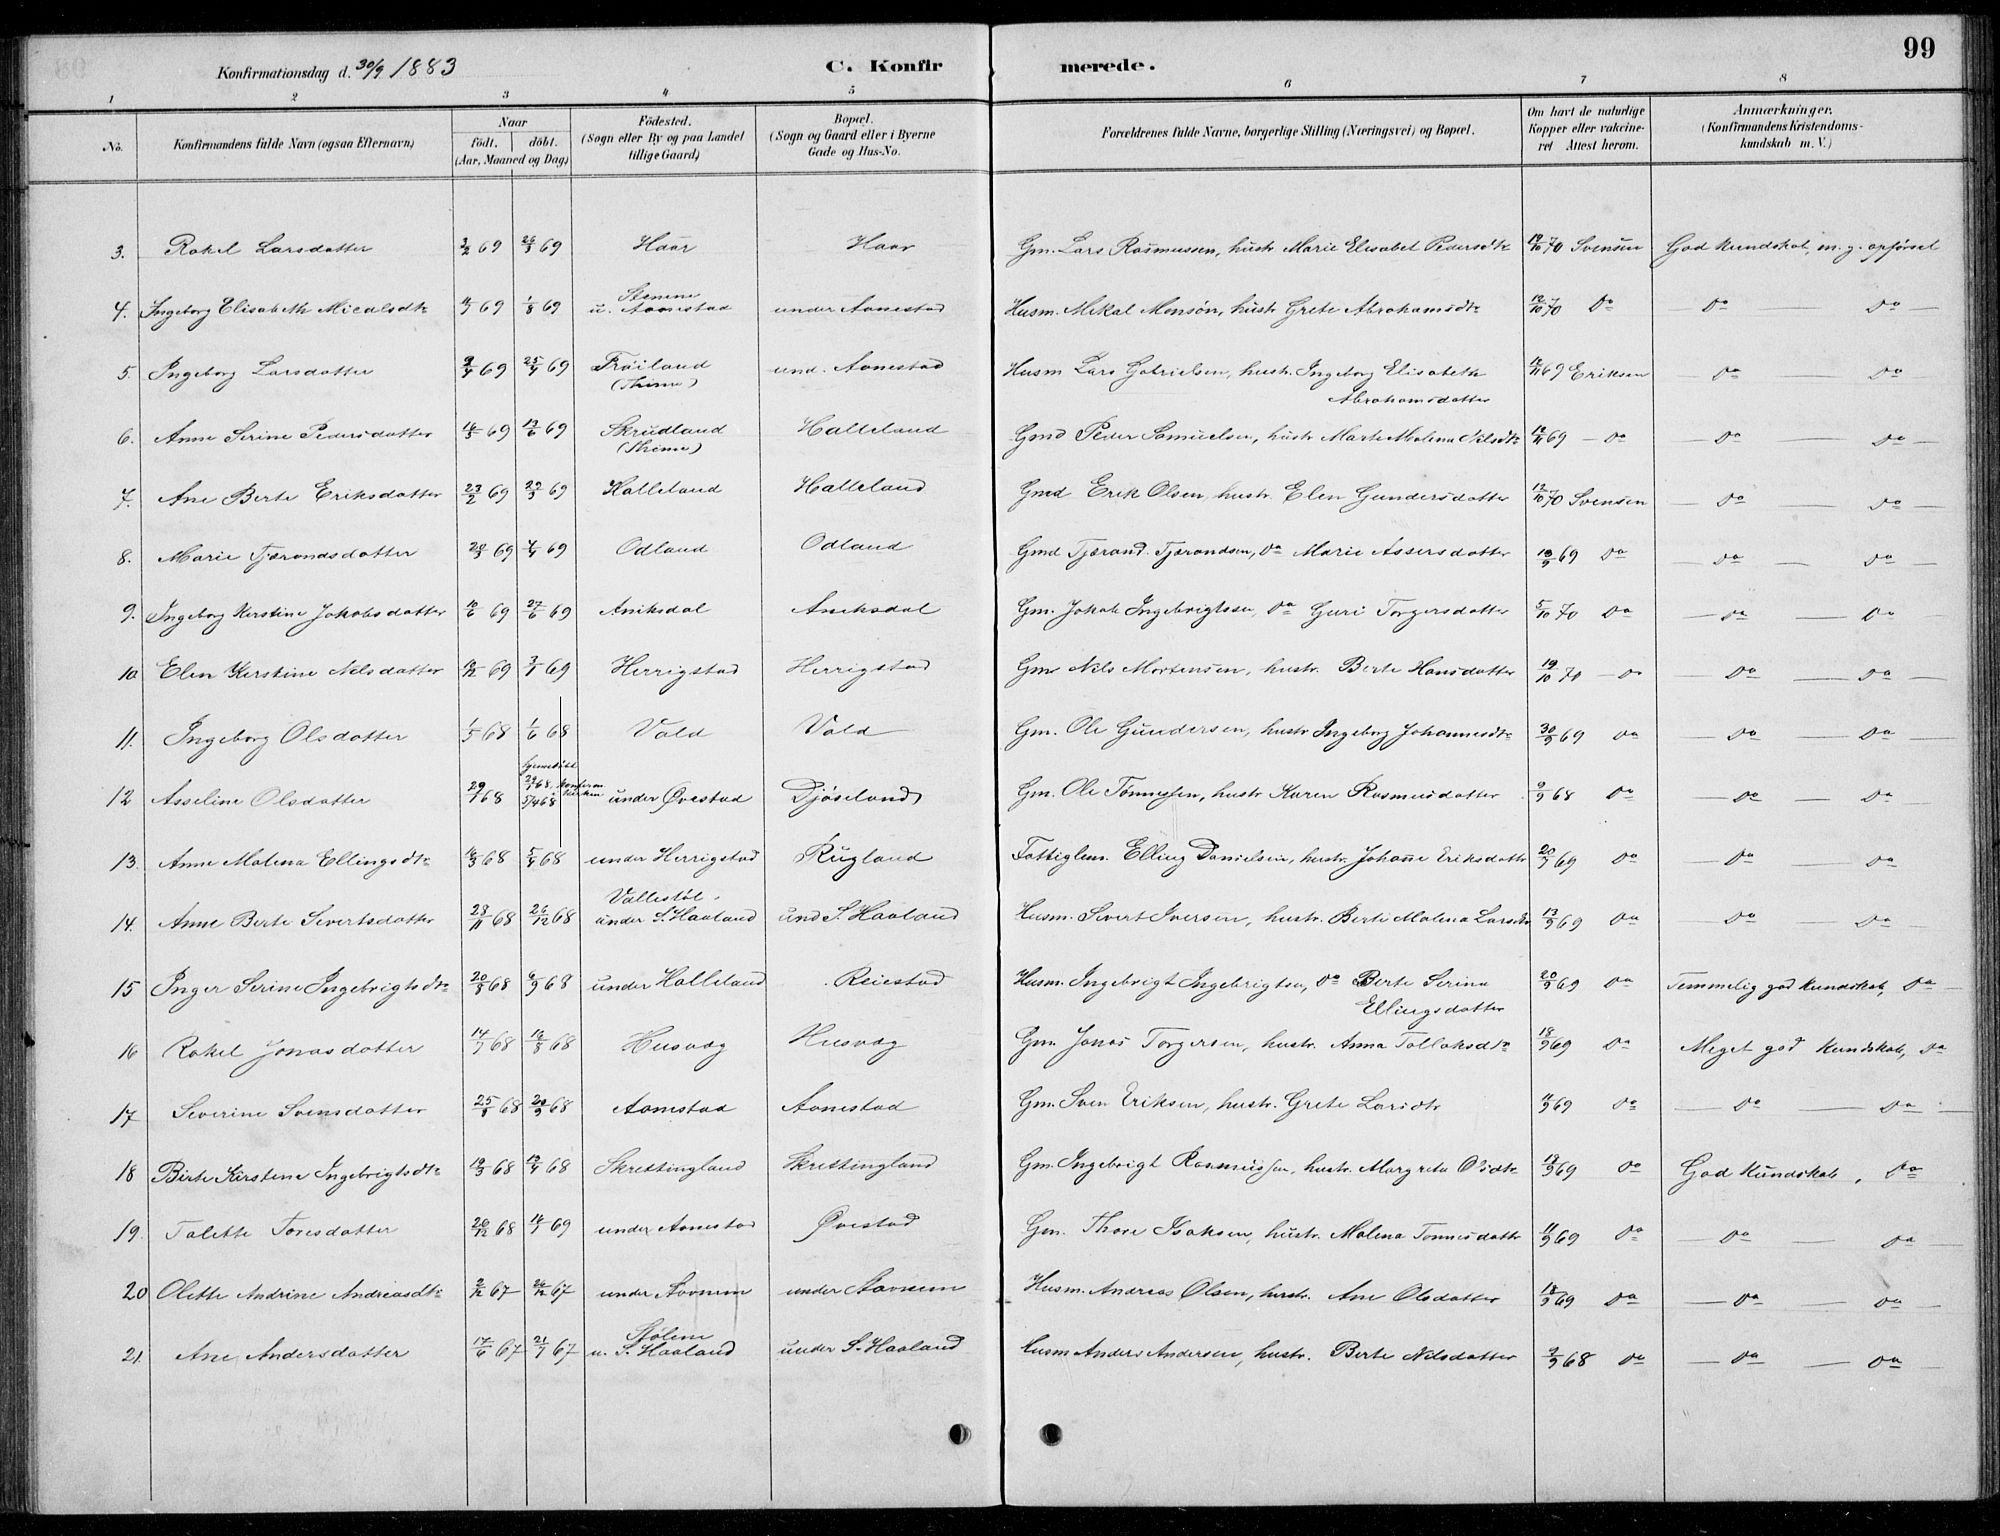 99
Konfirmationsdag d. 30/9 1883
C. Konfir merede.
1 2 3 4 5 6 7 8
No.
Konfirmandens fulde Navn (ogsaa Efternavn)
Naar
födt. döbt.
(Aar, Maaned og Dag)
Födested.
(Sogn eller By og paa Landet
tillige Gaard)
Bopæl.
(Sogn og Gaard eller i Byerne
Gade og Hus-No.
Forældrenes fulde Navne, borgerlige Stilling (Næringsvei) og Bopæl.
Om havt de naturlige
Kopper eller vakcine-
ret Attest herom.
Anmærkninger.
(Konfirmandens Kristendoms-
kundskab m. V.)
3. Rakel Larsdatter 2/2 69 26/3 69 Haar Haar Gm. Lars Rasmussen, hustr Marie Elisabet Pedersdtr 12/10 70 Svensen God kundskab, m. g. opførsel
4. Ingeborg Elisabeth Micalsdtr 11/7 69 1/8 69 Stenene u. Aanestad under Aanestad Husm. Mikal Monsøn, hustr Grete Abrahamsdtr 12/10 70 Do — Do — Do —
5. Ingeborg Larsdatter 9/4 69 25/4 69 Frøiland (Thime) und. Aanestad Husm Lars Gabrielsen, hustr. Ingeborg Elisabeth Abrahamsdatter 12/11 69 Eriksen — Do — Do
6. Anne Serine Pedersdatter 16/5 69 13/6 69 Skrudland (Thime) Halleland Gmd Peder Samuelsen, hustr Marte Malena Nilsdtr 12/11 69 — Do — Do — Do —
7. Ane Berte Eriksdatter 23/2 69 29/3 69 Halleland Halleland Gmd Erik Olsen, hustr. Elen Gundersdatter 12/10 70 Svensen — Do — Do —
8. Marie Tjærandsdatter 20/3 69 4/4 69 Odland Odland Gmd Tjærand Tjærandsen, Do Marie Assersdatter 13/9 69 Do — Do — Do
9. Ingeborg Kerstine Jakobsdatter 10/6 69 27/6 69 Aniksdal Aniksdal Gm. Jakob Ingebrigtsen, Do Guri Torgersdatter 5/10 70 Do — Do — Do —
10 Elen Kerstine Nilsdatter 16/12 69 2/1 69 Herrigstad Herrigstad Gm Nils Mortensen, hustr. Berte Hansdatter 19/10 70 — Do — Do — Do —
11. Ingeborg Olsdatter 1/5 68 1/6 68 Vold Vold Gm. Ole Gundersen, hustr Ingeborg Johannesdtr 30/9 69 Do — Do — Do
12 Asseline Olsdatter 29/1 68 hjemmedøbt 29/1 68, konfirm i kirken 5/4 68 under Øvestad Djøseland Gm. Ole Tønnessen, hustr Karen Rasmusdatter 9/9 68 Do — Do — Do
13. Anne Malena Ellingsdtr 16/3 68 5/4 68 under Herrigstad Rugland Fattiglem. Elling Danielsen, hustr. Johanne Eriksdattr 20/9 69 Do — Do — Do
14. Anne Berte Sivertsdatter 28/11 68 26/12 68 Vallestøl. under S. Haaland und S. Haaland Husm. Sivert Iversen, hustr. Berte Malena Larsdtr 13/9 69 Do — Do — Do —
15 Inger Serine Ingebrigtsdtr 20/8 68 6/9 68 under Halleland Reiestad Husm. Ingebrigt Ingebrigtsen, Do Berte Serina Ellingsdatter 20/9 69 Do Temmelig god kundskab, Do —
16 Rakel Jonasdatter 14/7 68 16/8 68 Husvæg Husvæg Gm. Jonas Torgersen, hustr. Anna Tollaksdtr 18/9 69 Do Meget god kundskab, Do
17. Severine Svensdatter 25/8 68 20/9 68 Aanestad Aanestad Gm. Sven Eriksen, hustr. Grete Larsdtr 11/9 69 Do — Do — Do —
18 Birte Kirstene Ingebrigtsdtr 19/3 68 13/4 68 Skrettingland Skrettingland Gm. Ingebrigt Rasmussen, hustr. Margreta Olsdtr 13/9 69 Do God kundskab, Do
19. Talette Toresdatter 26/12 68 14/1 69 under Aanestad Øvestad Gm. Thore Isaksen, hustr. Malena Tonnesdattr 11/9 69 Do — Do — Do
20 Olette Andrine Andreasdtr 2/12 67 26/12 67 under Stavnem under Stavnem Husm. Andreas Olsen, hustr. Ane Olsdatter 18/9 69 Do — Do — Do —
21. Ane Andersdatter 17/6 67 21/7 67 Stølene u. S. Haaland under S. Haaland Husm Anders Andersen, hustr. Berte Nilsdatter 9/9 68 Do — Do — Do —